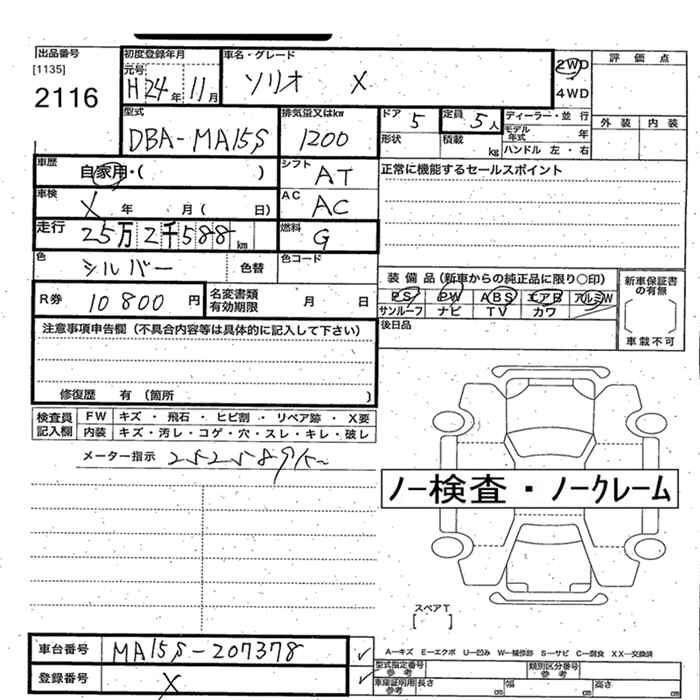 出品番号
[1135]
2116
初度登録年月
元号
H 24 年 11 月
車名・グレード
ソリオ X
2WD
4WD
評価点
外装 内装
型式
DBA-MA15S
排気量又はkw
1200
ドア 5
形状
定員 5人
積載 kg
ディーラー・並行
モデル年式
ハンドル 左・右
車歴
自家用・( )
シフト
AT
正常に機能するセールスポイント
車検
X 年 月 ( 日)
AC
AC
走行
25万2千588 km
燃料
G
色
シルバー
色替
色コード
装備品(新車からの純正品に限り○印)
PS PW ABS エアB アルミW
サンルーフ ナビ TV カワ
後日品
新車保証書の有無
車載不可
R券 10800 円
名変書類有効期限 月 日
注意事項申告欄(不具合内容等は具体的に記入して下さい)
修復歴 有 (箇所 )
検査員記入欄
FW キズ・飛石・ヒビ割・リペア跡・X要
内装 キズ・汚レ・コゲ・穴・スレ・キレ・破レ
メーター指示 252589㎞
ノー検査・ノークレーム
スペアT
[ ]
車台番号 MA15S-207378
登録番号 X
A-キズ E-エクボ U-凹み W-補修跡 S-サビ C-腐食 XX-交換済
型式指定番号 参考
類別区分番号 参考
車庫証明用 参考 長さ cm 幅 cm 高さ cm